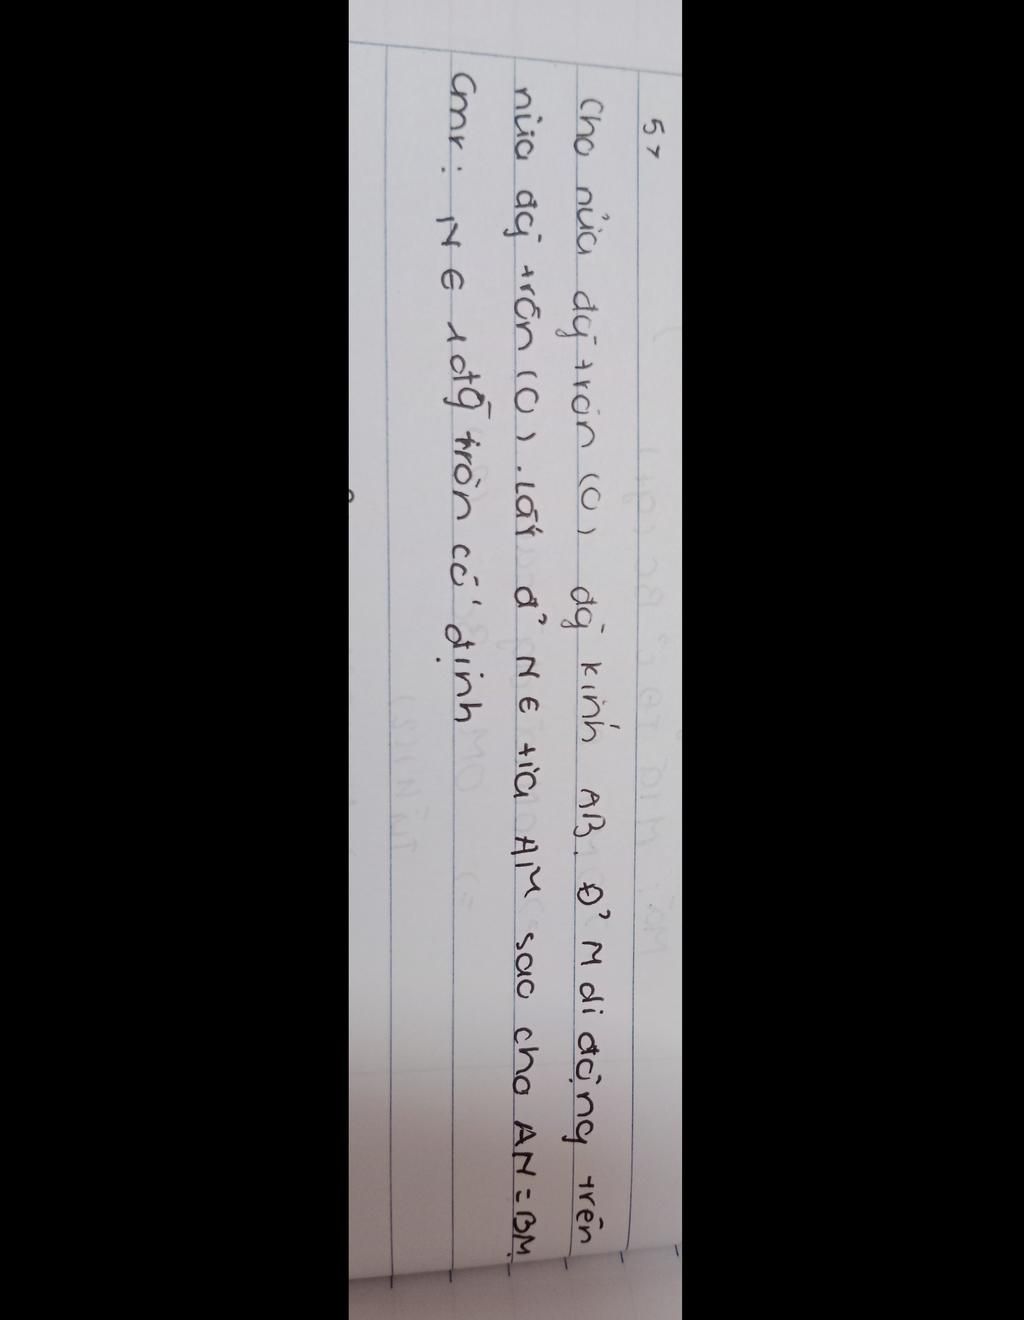 5>
Cho nửa đg̀ tròn (O) đg̀ kính AB. Đ' M di động trên
nửa đg̀ tròn (O). Lấy đ' N ∈ tia AM sao cho AN = BM.
Cmr: N ∈ 1 đg̀ tròn cố định